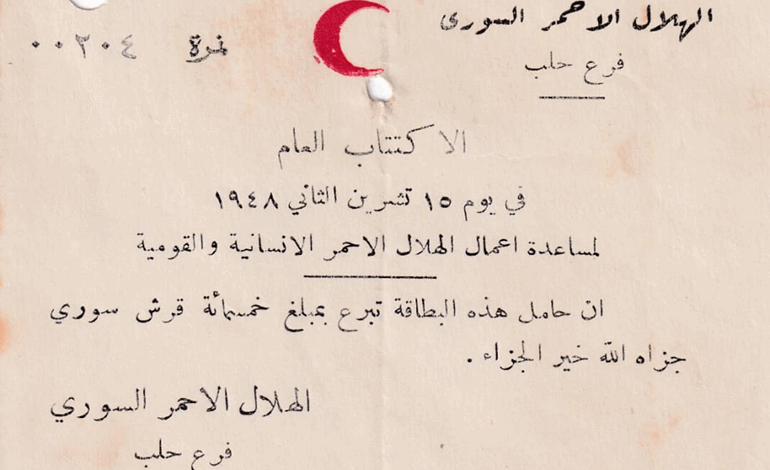 الهلال الاحمر السوري
نمرة ٠٠٢٠٤
فرع حلب
الاكتتاب العام
في يوم ١٥ تشرين الثاني ١٩٤٨
لمساعدة اعمال الهلال الاحمر الانسانية والقومية
ان حامل هذه البطاقة تبرع بمبلغ خمسمائة قرش سوري
جزاه الله خير الجزاء .
الهلال الاحمر السوري
فرع حلب